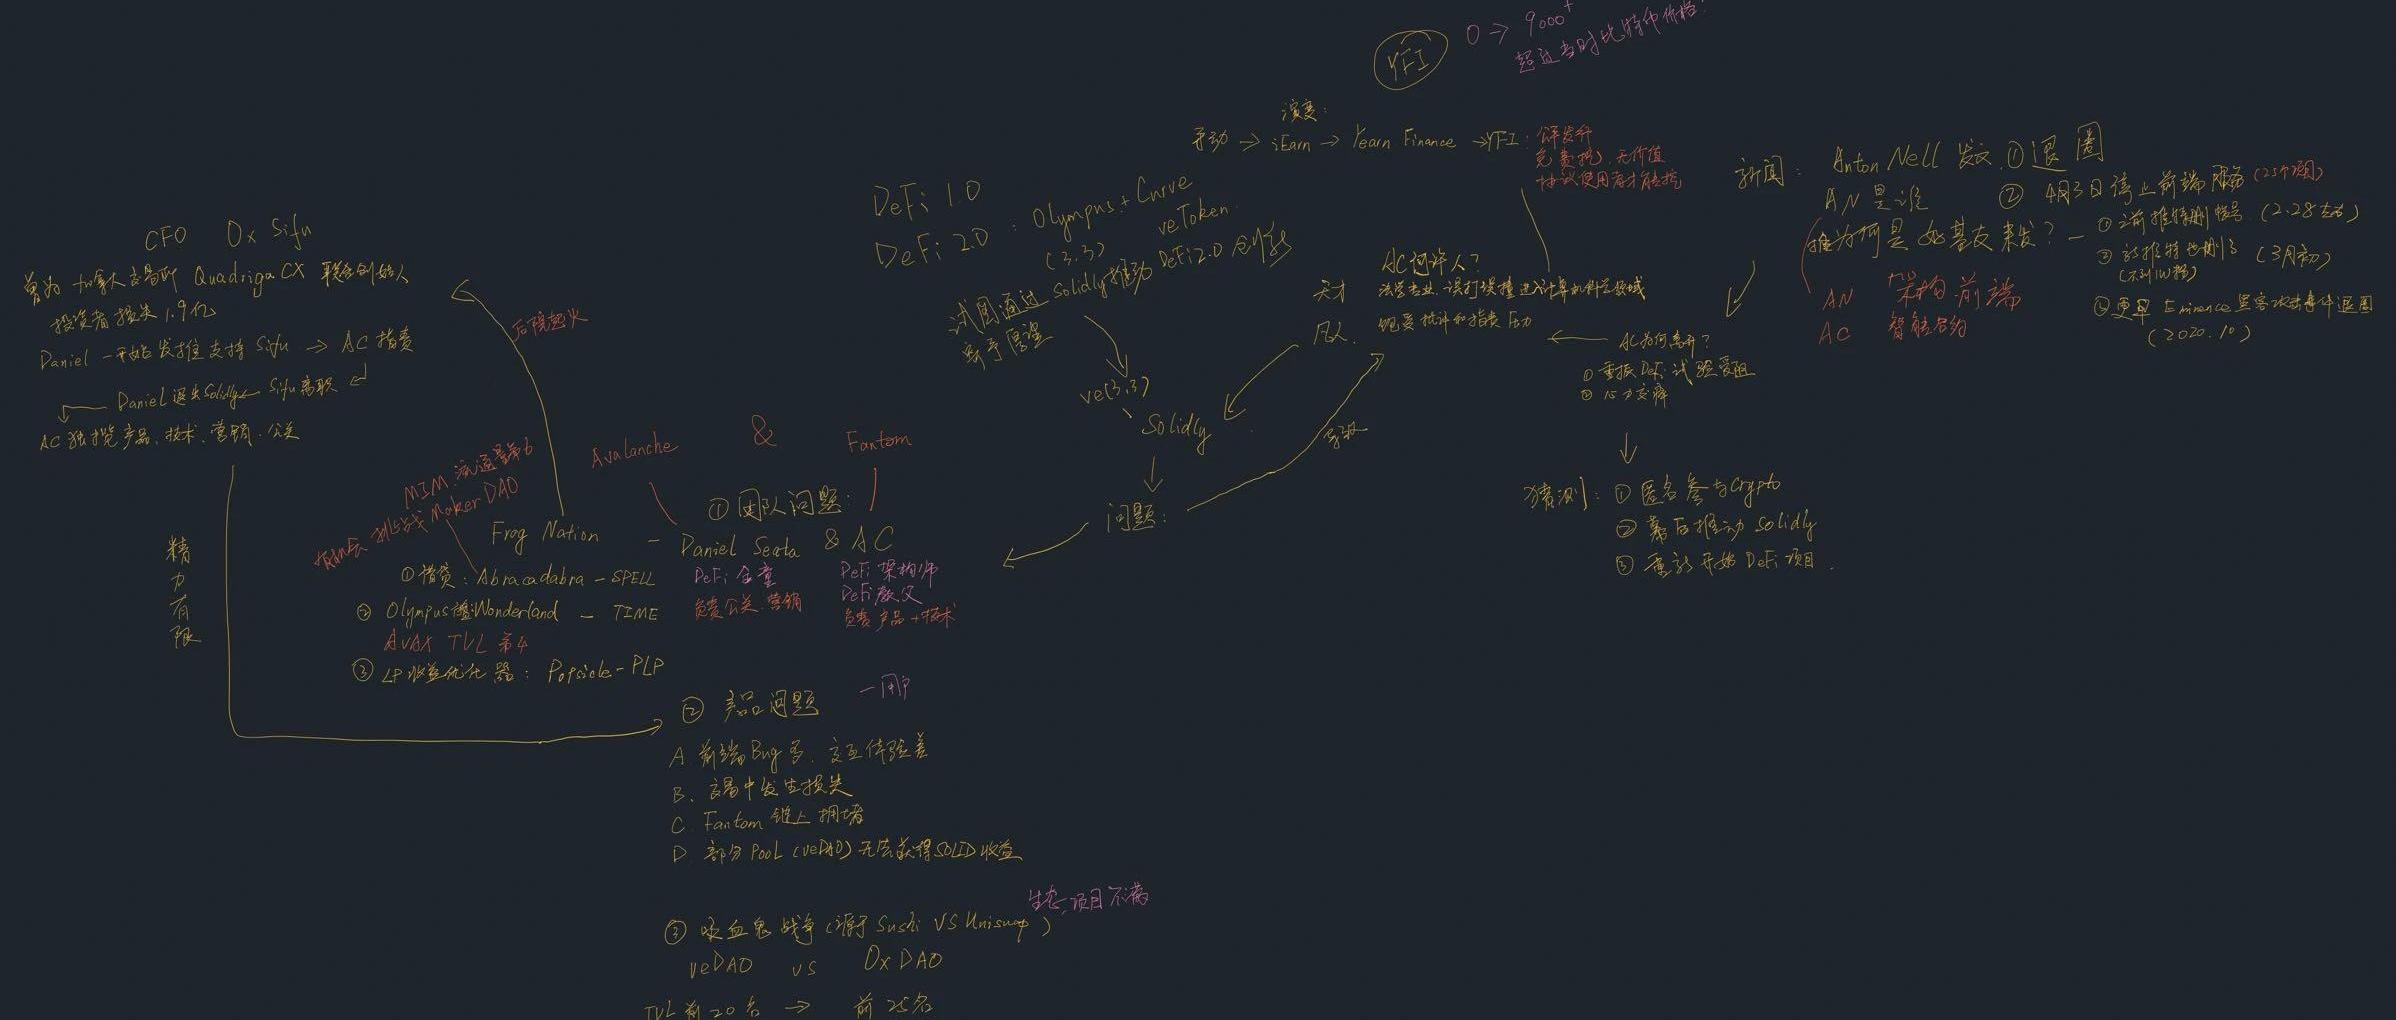 YFI
0 → 9000+
超过当时比特币价格
演变:
手动 → iEarn → Yearn Finance → YFI:
公平发行
免费挖、无价值
协议使用者才能挖
新闻: Anton Nell 发文 ① 退圈
② 4月3日停止前端服务 (25个项目)
AN 是谁
为何是好基友来发? —
① 之前推特删帐号 (2.28左右)
② 新推特也删了 (3月初)
③ 更早 Eminence 黑客攻击事件退圈
(2020.10)
AN 架构 前端
AC 智能合约
DeFi 1.0
DeFi 2.0: Olympus + Curve
(3.3) veToken
试图通过 Solidly 推动 DeFi 2.0 创新
寄予厚望
ve(3,3)
Solidly
问题:
导致
AC何许人?
天才 法学专业、误打误撞进入计算机科学领域
凡人 饱受批评和指责压力
AC为何离开?
① 重振DeFi试验受阻
② 心力交瘁
猜测: ① 匿名参与Crypto
② 幕后推动 Solidly
③ 重新开始 DeFi 项目.
CFO 0x Sifu
曾为 加拿大交易所 QuadrigaCX 联合创始人
投资者损失 1.9亿
Daniel 一开始发推支持 Sifu → AC 指责
Daniel 退出Solidly ← Sifu离职
AC 独揽产品、技术、营销、公关
后院起火
精力有限
Avalanche & Fantom
① 团队问题:
Frog Nation — Daniel Sesta & AC
DeFi 金童
负责公关、营销
DeFi 架构师
DeFi 教父
负责产品+技术
MIM 流通量第6
挑战 MakerDAO
① 借贷: Abracadabra — SPELL
② Olympus Wonderland — TIME
AVAX TVL 第4
③ LP收益优化器: Popsicle — PLP
② 产品问题 — 用户
A 前端Bug多、交互体验差
B、交易中发生损失
C Fantom 链上拥堵
D 部分 Pool (veDAO) 无法获得SOLID收益
生态项目不满
③ 吸血鬼战争 (源于 Sushi VS Uniswap)
veDAO vs 0xDAO
TVL 前20名 → 前25名